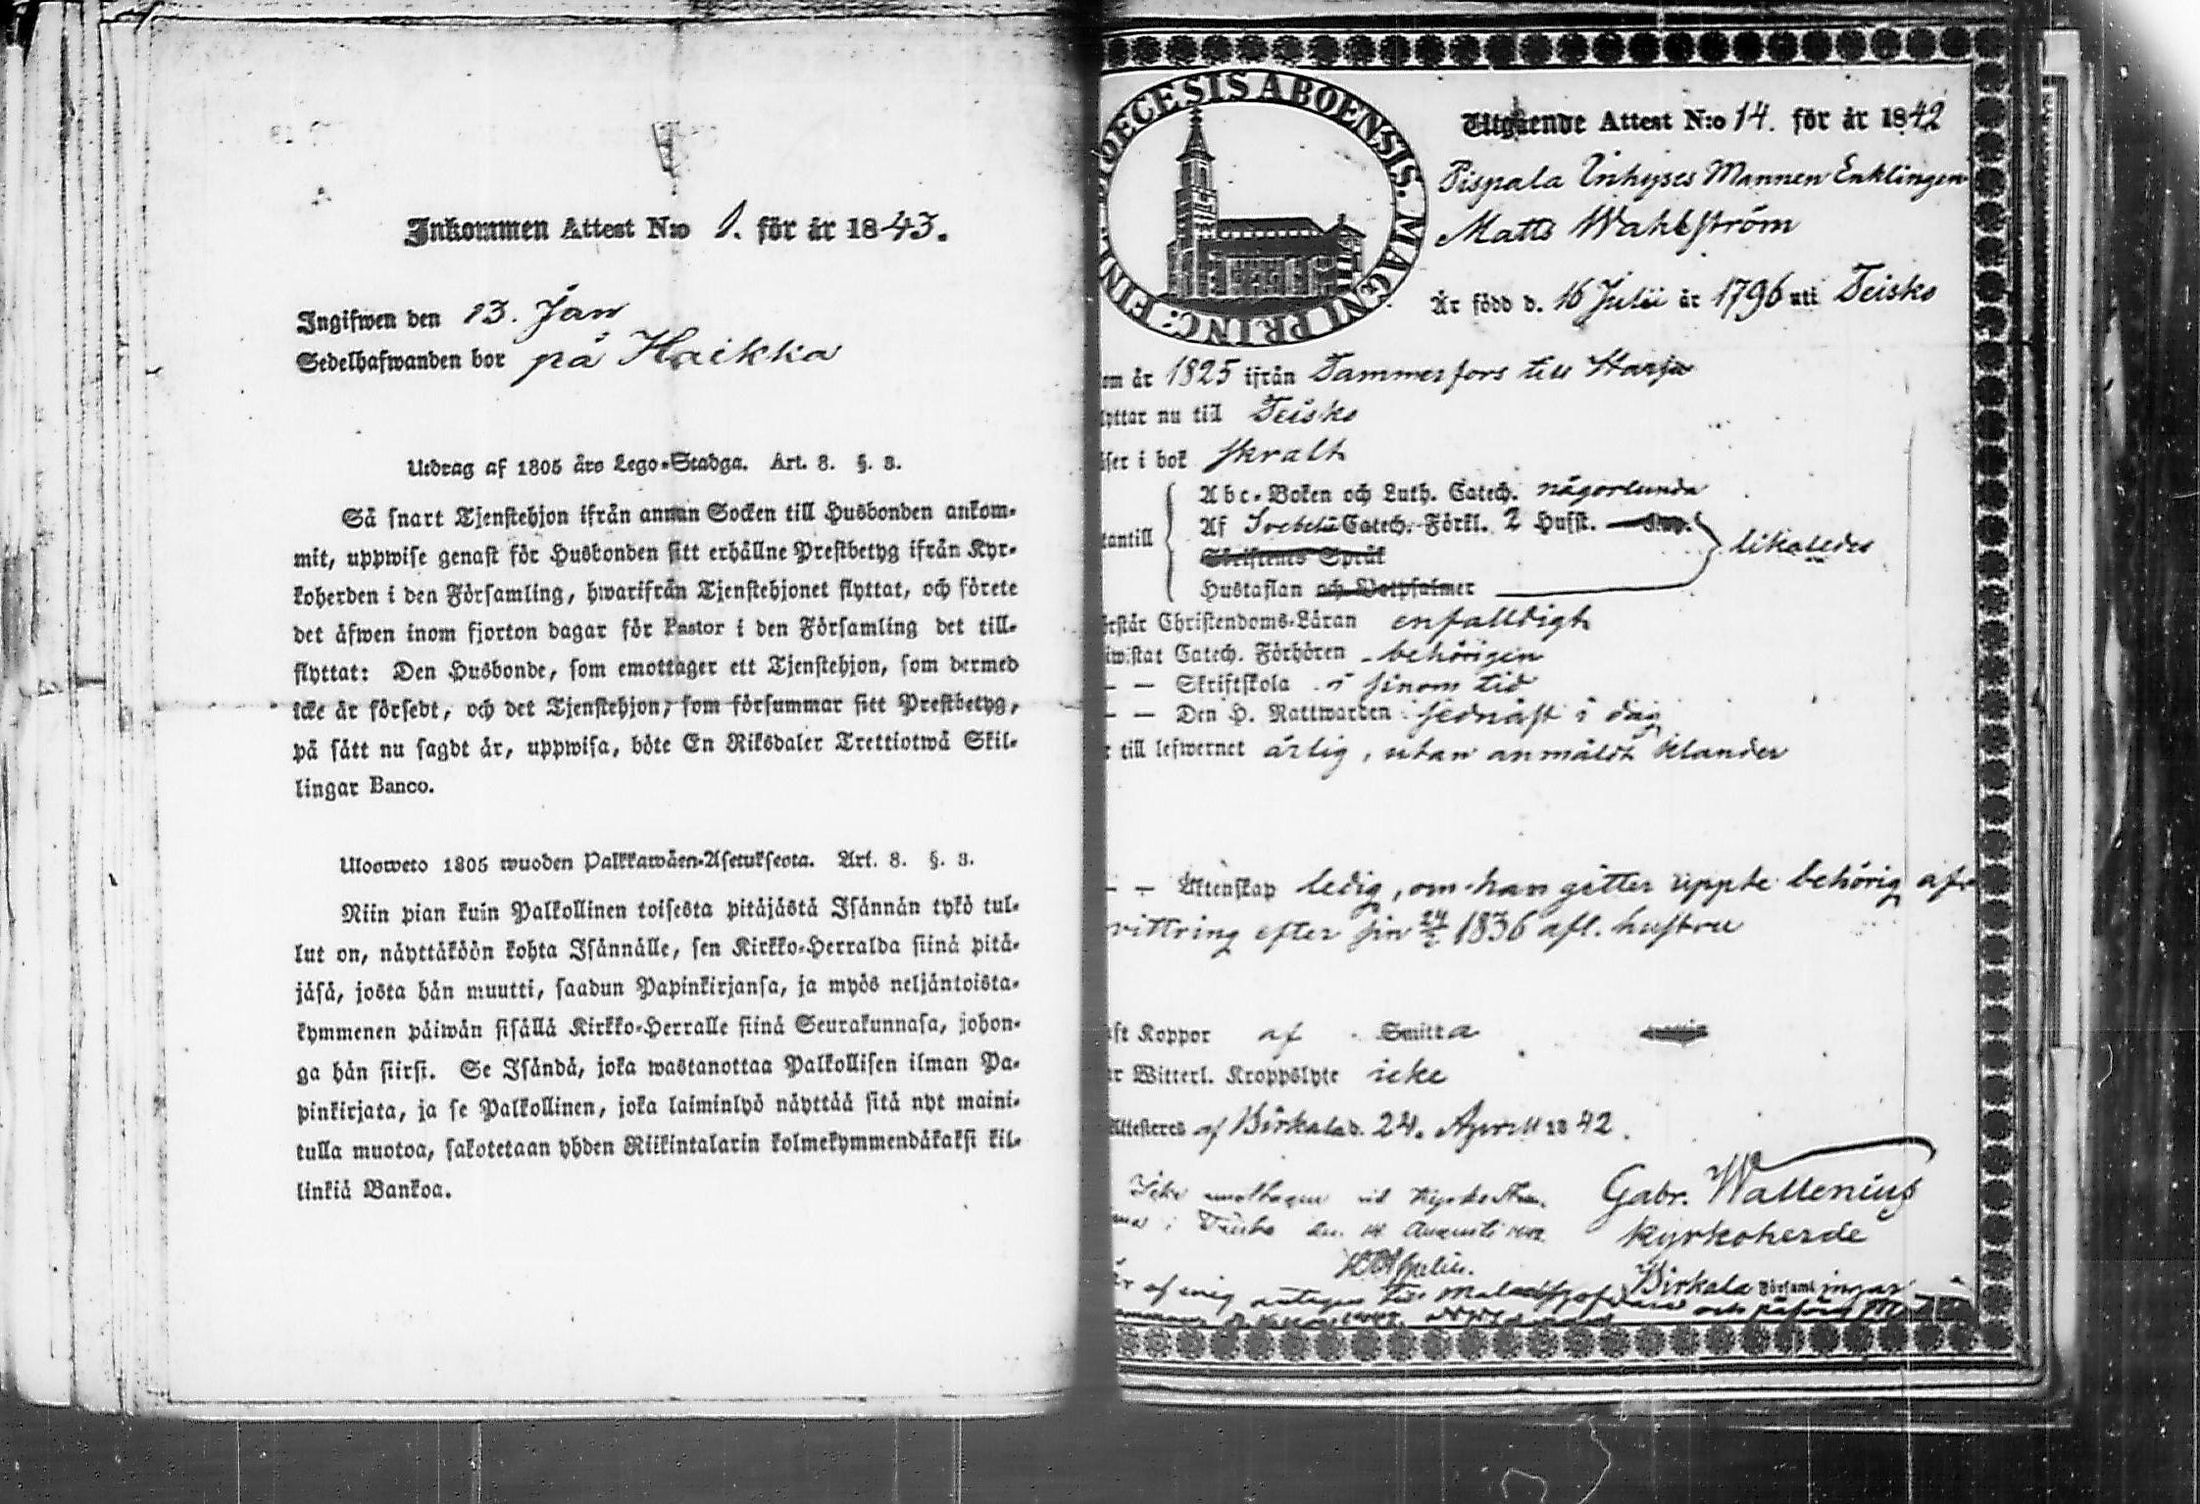 Inkommen Attest N:o 1. för år 1843.
Ingifwen den 13. Jan
Sedelhafwanden bor på Haikka
Utdrag af 1805 års Lego-Stadga. Art. 8. §. 3.
Så snart Tjenstehjon ifrån annan Socken till Husbonden ankom-
mit, uppwise genast för Husbonden sitt erhållne Prestbetyg ifrån Kyr-
koherden i den Församling, hwarifrån Tjenstehjonet flyttat, och förete
det äfwen inom fjorton dagar för Pastor i den Församling det till-
flyttat: Den Husbonde, som emottager ett Tjenstehjon, som dermed
icke är försedt, och det Tjenstehjon, som försummar sitt Prestbetyg,
på sätt nu sagdt är, uppwisa, böte En Riksdaler Trettiotwå Skil-
lingar Banco.
Ulosweto 1805 wuoden Palkkawäen-Asetuksesta. Art. 8. §. 3.
Niin pian kuin Palkollinen toisesta pitäjästä Isännän tykö tul-
lut on, näyttäköön kohta Isännälle, sen Kirkko-Herralda siinä pitä-
jäsä, josta hän muutti, saadun Papinkirjansa, ja myös neljäntoista-
kymmenen päiwän sisällä Kirkko-Herralle siinä Seurakunnasa, johon-
ga hän siirsi. Se Isändä, joka wastanottaa Palkollisen ilman Pa-
pinkirjata, ja se Palkollinen, joka laiminlyö näyttää sitä nyt maini-
tulla muotoa, sakotetaan yhden Riikintalarin kolmekymmendäkaksi kil-
linkiä Bankoa.
DIOECESIS ABOENSIS. MAGNI PRINC: FINL.
Utgående Attest N:o 14. för år 1842
Pispala Inhyses Mannen Enklingen
Matts Wahlström
Är född d. 16 Julii år 1796 uti Teisko
om år 1825 ifrån Tammerfors till Harju
lyttar nu till Teisko
äser i bok skralt
Abc-Boken och Luth. Catech. någorlunda
tantill Af Svebelii Catech. Förkl. 2 Hufst.
Skriftenes Språk likaledes
Hustaflan och Botpsalmer
örstår Christendoms-Läran enfalldigt
iwistat Catech. Förhören behörigen
– – Skriftskola i sinom tid
– – Den H. Nattwarden sednast i dag
r till lefwernet ärlig, utan anmäldt klander
– – Äktenskap ledig, om han gitter uppte behörig af-
vittring efter sin 24/2 1836 afl. hustru
aft Koppor af Smitta
ar Witterl. Kroppslyte icke
Attesteres af Birkala d. 24. April 1842.
Gabr. Wallenius
Kyrkoherde
i Teisko den 14 Augusti 1842
Birkala Församlingar